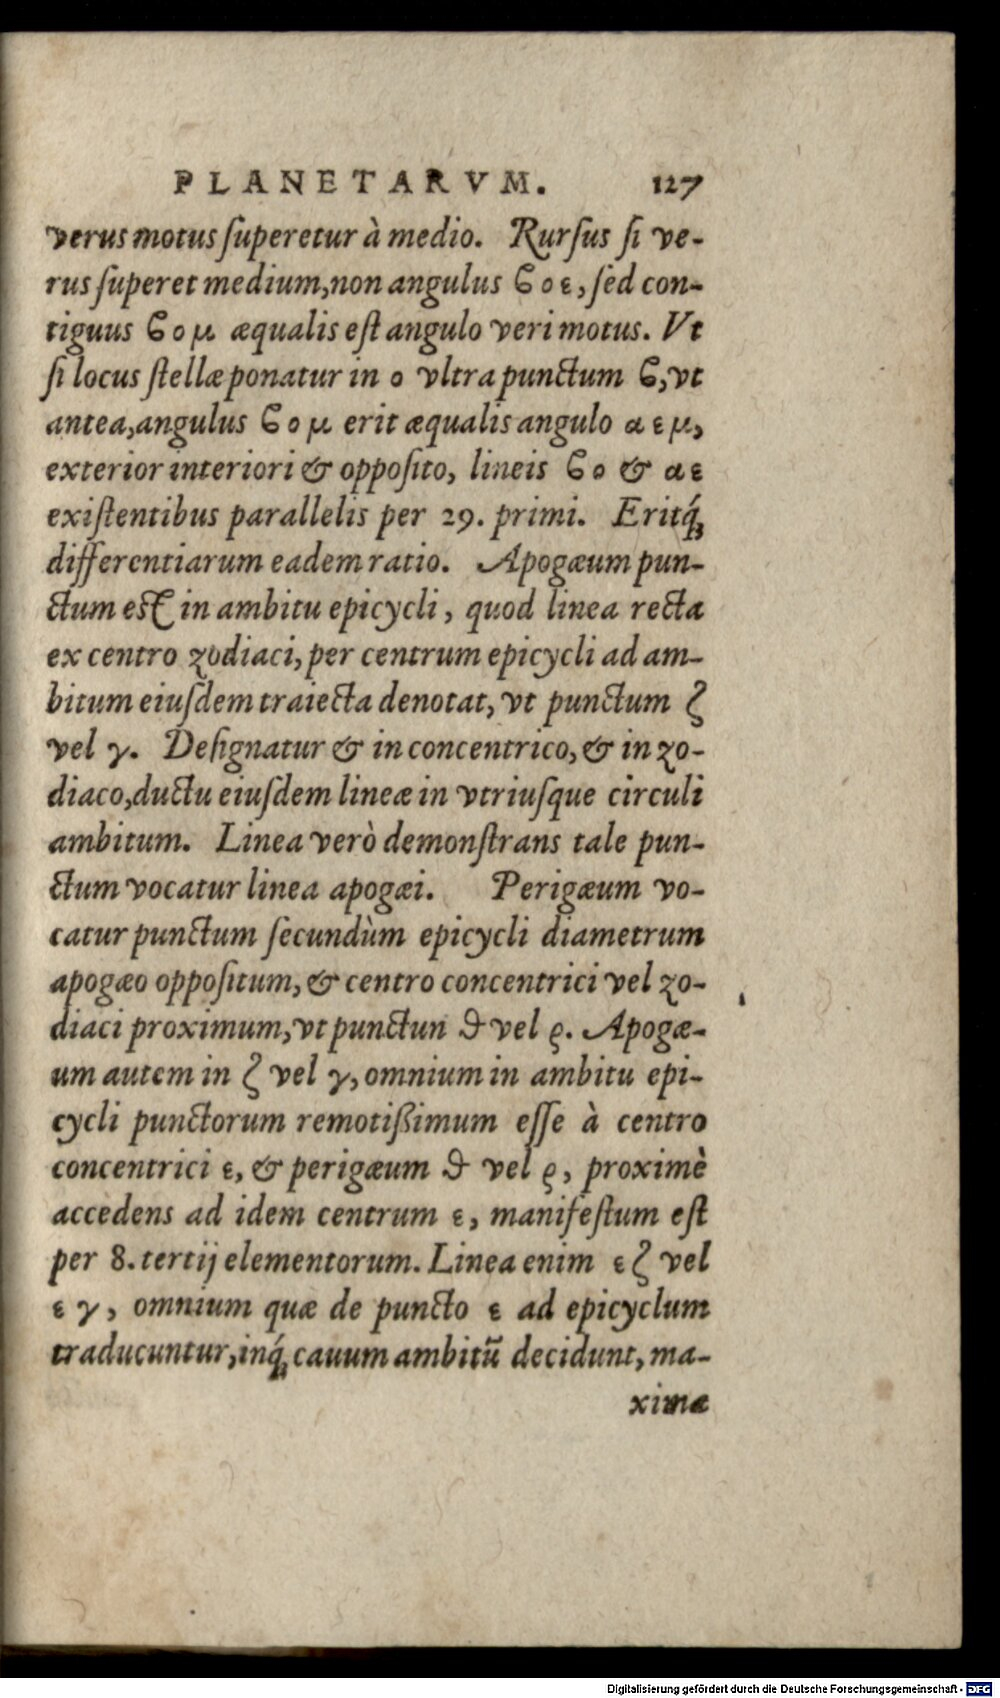 PLANETARVM. 127
verus motus ſuperetur à medio. Rurſus ſi ve-
rus ſuperet medium, non angulus ϐ ο ε, ſed con-
tiguus ϐ ο μ æqualis eſt angulo veri motus. Vt
ſi locus ſtellæ ponatur in ο vltra punctum ϐ, vt
antea, angulus ϐ ο μ erit æqualis angulo α ε μ,
exterior interiori & oppoſito, lineis ϐ ο & α ε
exiſtentibus parallelis per 29. primi. Eritq́;
differentiarum eadem ratio. Apogæum pun-
ctum eſt in ambitu epicycli, quod linea recta
ex centro zodiaci, per centrum epicycli ad am-
bitum eiuſdem traiecta denotat, vt punctum ζ
vel γ. Deſignatur & in concentrico, & in zo-
diaco, ductu eiuſdem lineæ in vtriuſque circuli
ambitum. Linea verò demonſtrans tale pun-
ctum vocatur linea apogæi. Perigæum vo-
catur punctum ſecundùm epicycli diametrum
apogæo oppoſitum, & centro concentrici vel zo-
diaci proximum, vt punctun ϑ vel ρ. Apogæ-
um autem in ζ vel γ, omnium in ambitu epi-
cycli punctorum remotißimum eſſe à centro
concentrici ε, & perigæum ϑ vel ρ, proximè
accedens ad idem centrum ε, manifeſtum eſt
per 8. tertij elementorum. Linea enim ε ζ vel
ε γ, omnium quæ de puncto ε ad epicyclum
traducuntur, inq́; cauum ambitū decidunt, ma-
xima
Digitalisierung gefördert durch die Deutsche Forschungsgemeinschaft - DFG